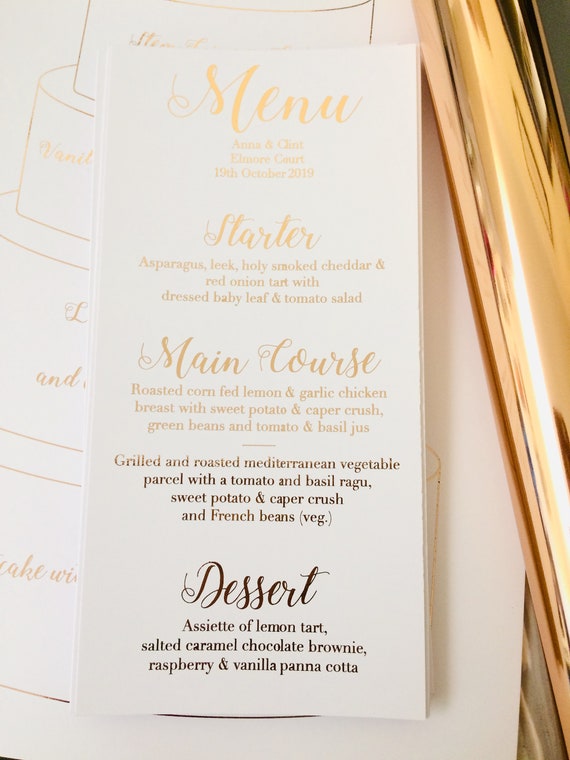 Menu
Anna & Clint
Elmore Court
19th October 2019
Starter
Asparagus, leek, holy smoked cheddar &
red onion tart with
dressed baby leaf & tomato salad
Main Course
Roasted corn fed lemon & garlic chicken
breast with sweet potato & caper crush,
green beans and tomato & basil jus
Grilled and roasted mediterranean vegetable
parcel with a tomato and basil ragu,
sweet potato & caper crush
and French beans (veg.)
Dessert
Assiette of lemon tart,
salted caramel chocolate brownie,
raspberry & vanilla panna cotta
Vanil
L
and
cake wi